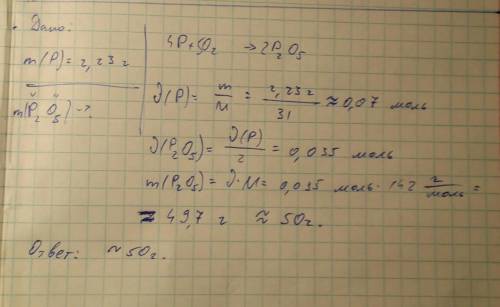 Дано:
m(P) = 2,23 г
m(P₂O₅) - ?
4P + 5O₂ → 2P₂O₅
ν(P) = m/M = 2,23 г/31 ≈ 0,07 моль
ν(P₂O₅) = ν(P)/2 = 0,035 моль
m(P₂O₅) = ν·M = 0,035 моль · 142 г/моль =
≈ 49,7 г ≈ 50 г.
Ответ: ≈ 50 г.